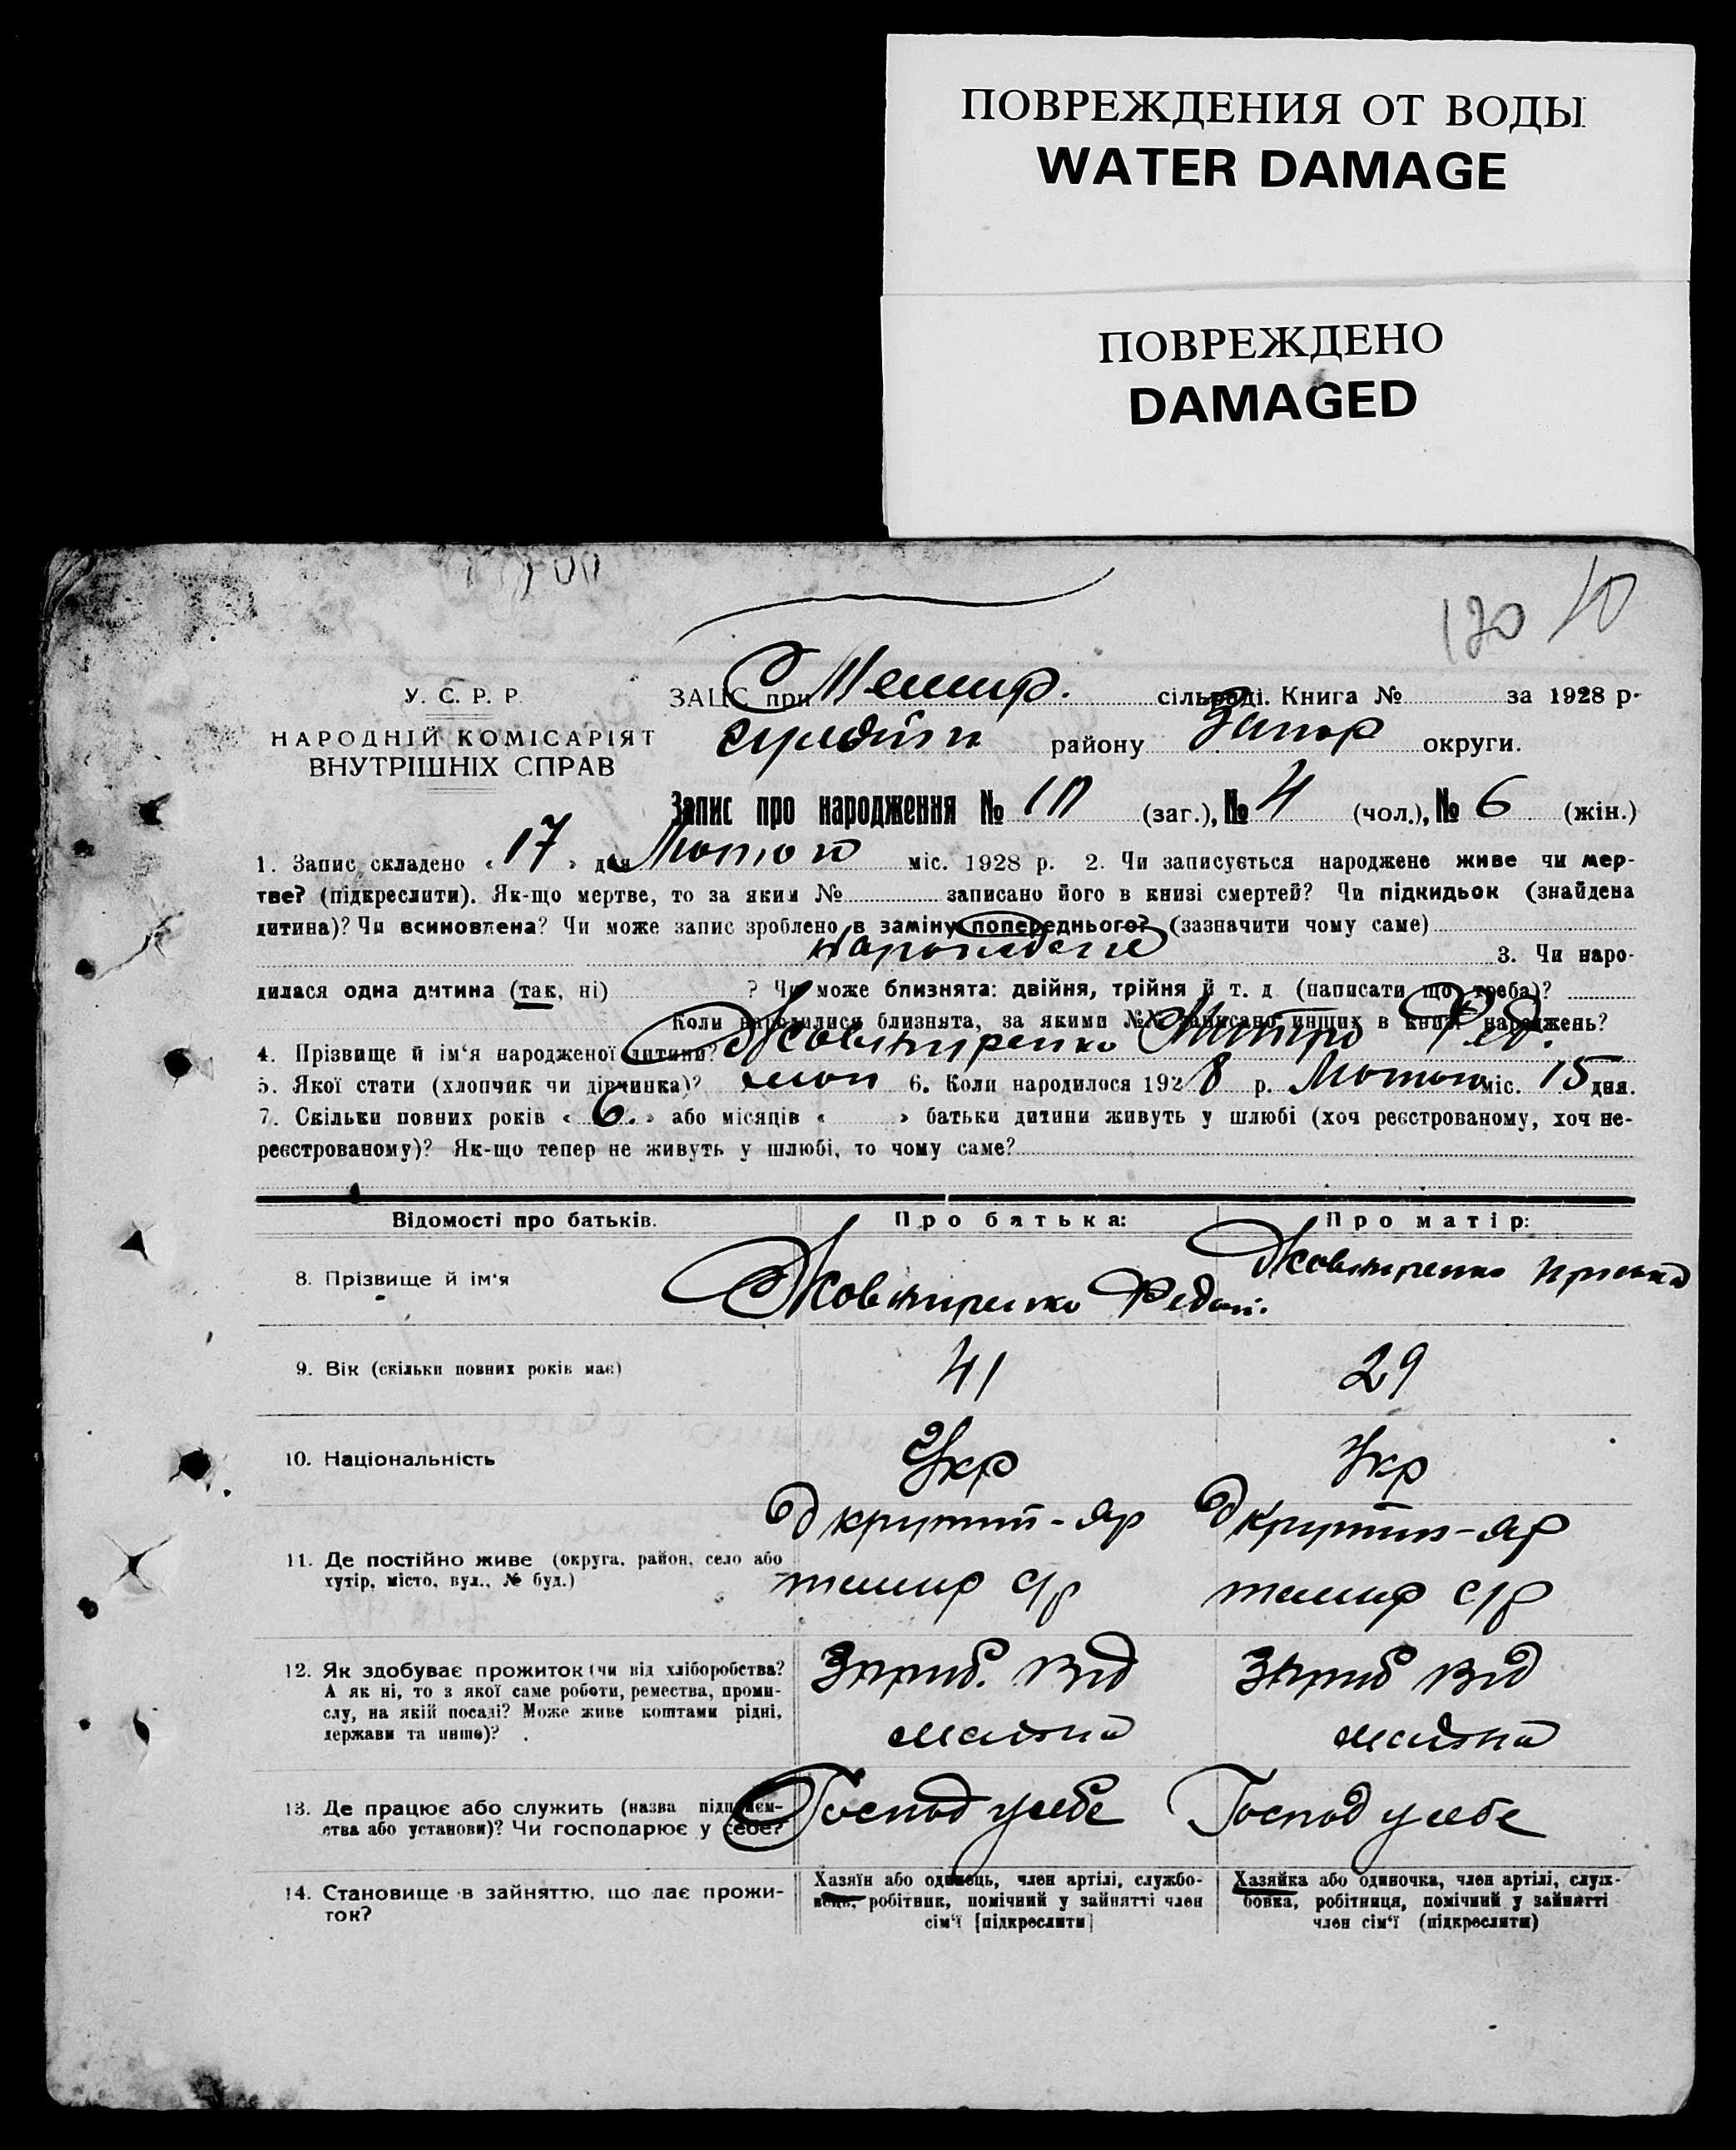 ПОВРЕЖДЕНИЯ ОТ ВОДЫ
WATER DAMAGE
ПОВРЕЖДЕНО
DAMAGED
120 10
У. С. Р. Р.
НАРОДНІЙ КОМІСАРІЯТ
ВНУТРІШНІХ СПРАВ
ЗАЦС при сільраді. Книга № за 1928 р.
району Запор округи.
Запис про народження № 10 (заг.), № 4 (чол.), № 6 (жін.)
1. Запис складено « 17 » дня Лютого міс. 1928 р. 2. Чи записується народжене живе чи мер-
тве? (підкреслити). Як-що мертве, то за яким № записано його в книзі смертей? Чи підкидьок (знайдена
дитина)? Чи всиновлена? Чи може запис зроблено в заміну попереднього? (зазначити чому саме)
народжене 3. Чи наро-
дилася одна дитина (так, ні) ? Чи може близнята: двійня, трійня й т. д. (написати що треба)?
Коли народилися близнята, за якими №№ записано инших в книзі народжень?
4. Прізвище й ім'я народженої дитини? Жовниренко Митро Фед.
5. Якої стати (хлопчик чи дівчинка)? хлоп 6. Коли народилося 1928 р. Лютого міс. 15 дня.
7. Скільки повних років « 6. » або місяців « » батьки дитини живуть у шлюбі (хоч реєстрованому, хоч не-
реєстрованому)? Як-що тепер не живуть у шлюбі, то чому саме?
Відомості про батьків. Про батька: Про матір:
8. Прізвище й ім'я Жовниренко Федот. Жовниренко Приська
9. Вік (скільки повних років має) 41 29
10. Національність Укр Укр
11. Де постійно живе (округа, район, село або
хутір, місто, вул., № буд.)
Крутий-Яр Крутий-Яр
с/р с/р
12. Як здобуває прожиток (чи від хліборобства?
А як ні, то з якої саме роботи, ремества, проми-
слу, на якій посаді? Може живе коштами рідні,
держави та инше)?
Хліб. від Хліб від
майна майна
13. Де працює або служить (назва підприєм-
ства або установи)? Чи господарює у себе?
Господ у себе Господ у себе
14. Становище в зайняттю, що дає прожи-
ток?
Хазяїн або одинець, член артілі, службо-
вець, робітник, помічний у зайнятті член
сім'ї [підкреслити]
Хазяйка або одиночка, член артілі, служ-
бовка, робітниця, помічний у зайнятті
член сім'ї (підкреслити)